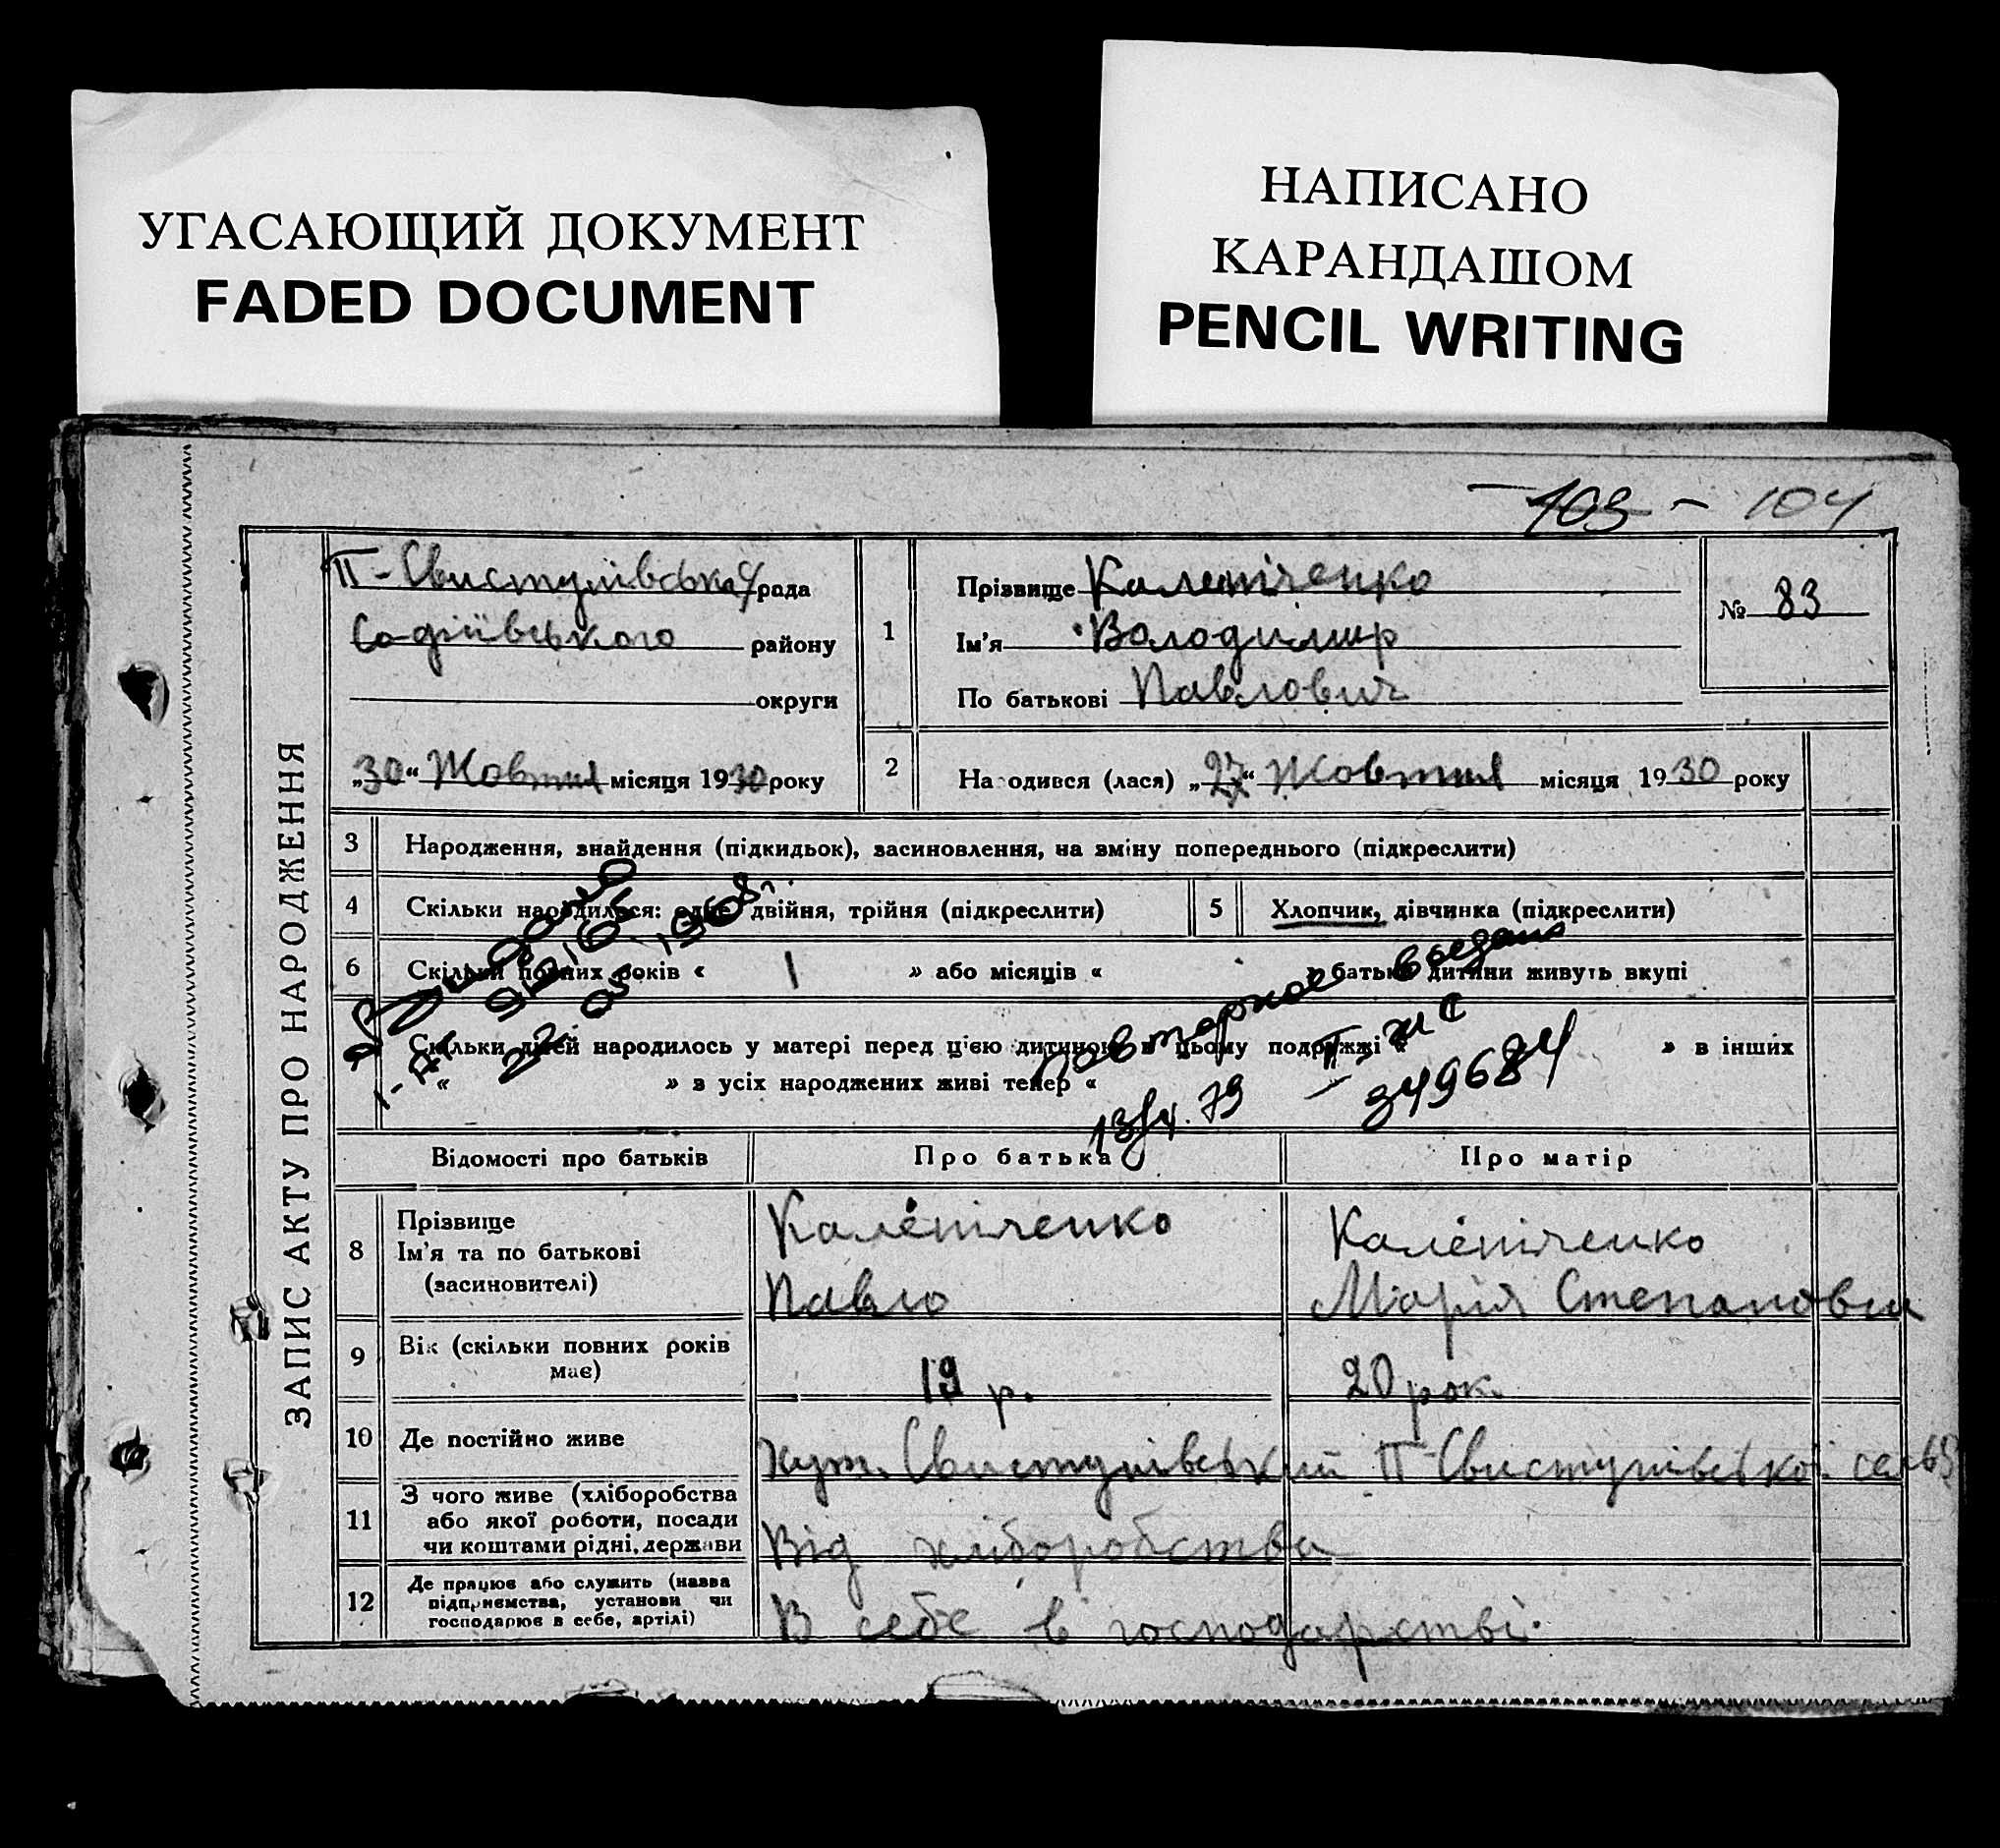 УГАСАЮЩИЙ ДОКУМЕНТ
FADED DOCUMENT
НАПИСАНО
КАРАНДАШОМ
PENCIL WRITING
103 - 104
ЗАПИС АКТУ ПРО НАРОДЖЕННЯ
П-Свистунівська рада
Софіївського району
округи
„30“ Жовтня місяця 1930 року
1
Прізвище Калепіченко
Ім'я Володимир
По батькові Павлович
№ 83
2 На одився (лася) „27“ Жовтня місяця 1930 року
3 Народження, знайдення (підкидьок), засиновлення, на зміну попереднього (підкреслити)
4 Скільки народилося: одне двійня, трійня (підкреслити) 5 Хлопчик, дівчинка (підкреслити)
6 Скільки повних років « 1 » або місяців « » батьки дитини живуть вкупі
Скільки дітей народилось у матері перед ц'єю дитиною в цьому подружжі « » в інших
« » з усіх народжених живі тепер «
22 05 1968г.
Повторное выдано
349684
13/4. 79
Відомості про батьків Про батька Про матір
8 Прізвище
Ім'я та по батькові
(засиновителі)
Калепіченко
Павло
Калепіченко
Марія Степановна
9 Вік (скільки повних років має) 19 р. 20 рок.
10 Де постійно живе хут. Свистунівський П-Свистунівської
11 З чого живе (хліборобства
або якої роботи, посади
чи коштами рідні, держави
Від хліборобства
12 Де працює або служить (назва
підприємства, установи чи
господарює в себе, артілі)
В себе в господарстві.